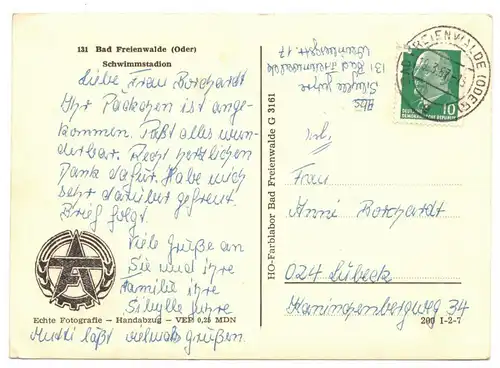 131 Bad Freienwalde (Oder)
Schwimmstadion
Liebe Frau Borchardt
Ihr Päckchen ist ange-
kommen. Paßt alles wun-
derbar. Recht herzlichen
Dank dafür. Habe mich
sehr darüber gefreut.
Brief folgt.
Viele Grüße an
Sie und ihre
Familie ihre
Sibylle
Mutti läßt vielmals grüßen.
Echte Fotografie — Handabzug — VEP 0,25 MDN
HO-Farblabor Bad Freienwalde G 3161
Abs.
Sibylle
131 Bad Freienwalde
17
BAD FREIENWALDE (ODER)
10
DEUTSCHE
DEMOKRATISCHE REPUBLIK
Frau
Anni Borchardt
024 Lübeck
Kaninchenbergweg 34
200 I-2-7